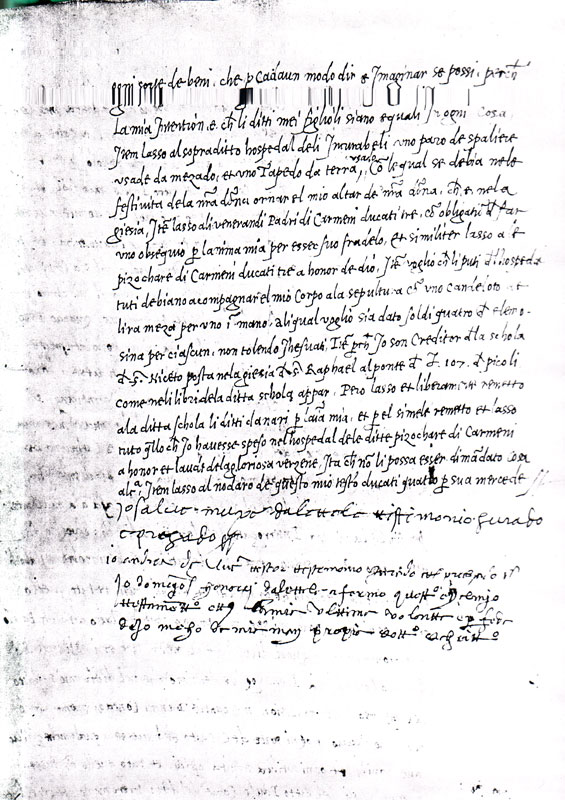 ogni sorte de beni, che p Cadaun modo dir e Imaginar se possi, perch
La mia Intention, e, ch li ditti mei figlioli siano equali In ogni cosa
Item lasso al sopraditto hospedal deli Incurabeli uno paro de spaliere
usade da mezado, et uno Tapedo da terra usado, Con le qual se debia nele
festivita dela nra dona ornar el mio altar de nra dona, ch e nela
giesia, Itē lasso ali venerandi Padri di Carmeni ducati tre, cō obligatiō d far
uno obsequio p lanima mia per esser suo fradelo, et similiter lasso a le
pizochare di Carmeni ducati tre a honor de dio, Itē voglio ch li puti d lhospedal
tuti debiano acompagnar el mio Corpo ala sepultura cū uno candeloto
lira meza per uno ī mano, ali qual voglio sia dato soldi quatro d elemo-
sina per ciascun, non tolendo Jhesuati, Itē perch Io son Creditor dla schola
d S. Niceto posta nela giesia d S. Raphael al ponte d £ 107. d picoli
come neli libri dela ditta schola appar, Pero lasso et liberamēte remetto
ala ditta schola li ditti danari p laīa mia, et p el simele remetto et lasso
tuto qllo ch Io havesse speso nel hospedal dele ditte pizochare di Carmeni
a honor et laude dela gloriosa verzene, Ita ch nō li possa esser dimādato cosa
alca, Item lasso al nodaro de questo mio testo ducati quatro p sua mercede
Io testimonio zurado
e pregado
io andrea de testimonio pregado
Io domego dale tele afermo questo eser el mio
testamento ultima volonta
de mia man propia soto scritto